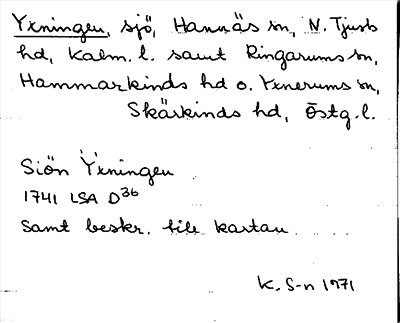 Yxningen, sjö, Hannäs sn, N. Tjusts
hd, Kalm. l. samt Ringarums sn,
Hammarkinds hd o. Yxnerums sn,
Skärkinds hd, Östg. l.
Siön Yxningen
1741 LSA D36
samt beskr. till kartan
K. S-n 1971